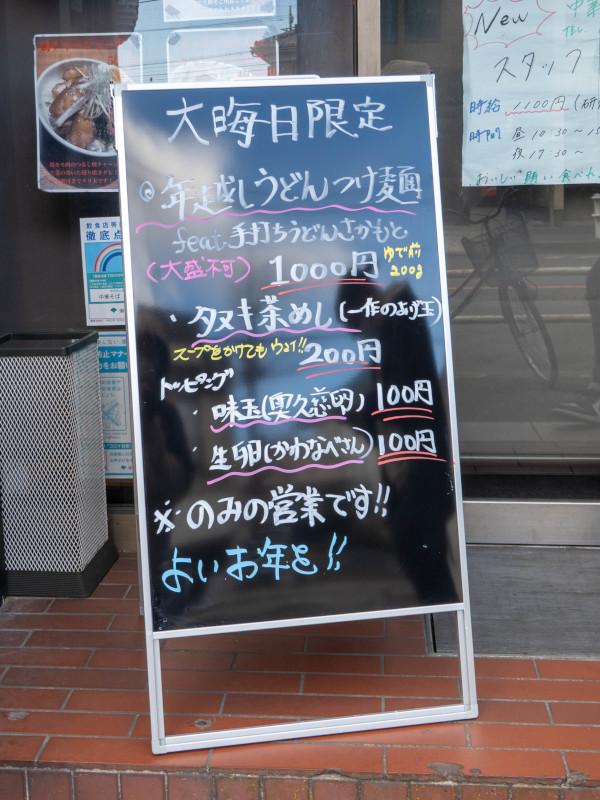 大晦日限定
◎年越しうどんつけ麺
feat.手打ちうどんさかもと
(大盛不可) 1000円 ゆで前200g
・タヌキ茶めし(一作のあげ玉)
スープをかけてもウマイ!! 200円
トッピング
・味玉(奥久慈卵) 100円
・生卵(かわなべさん) 100円
※のみの営業です!!
よいお年を!!
New
スタッフ
時給 1100円(研
時間 昼10:30~15
夜17:30~
徹底点